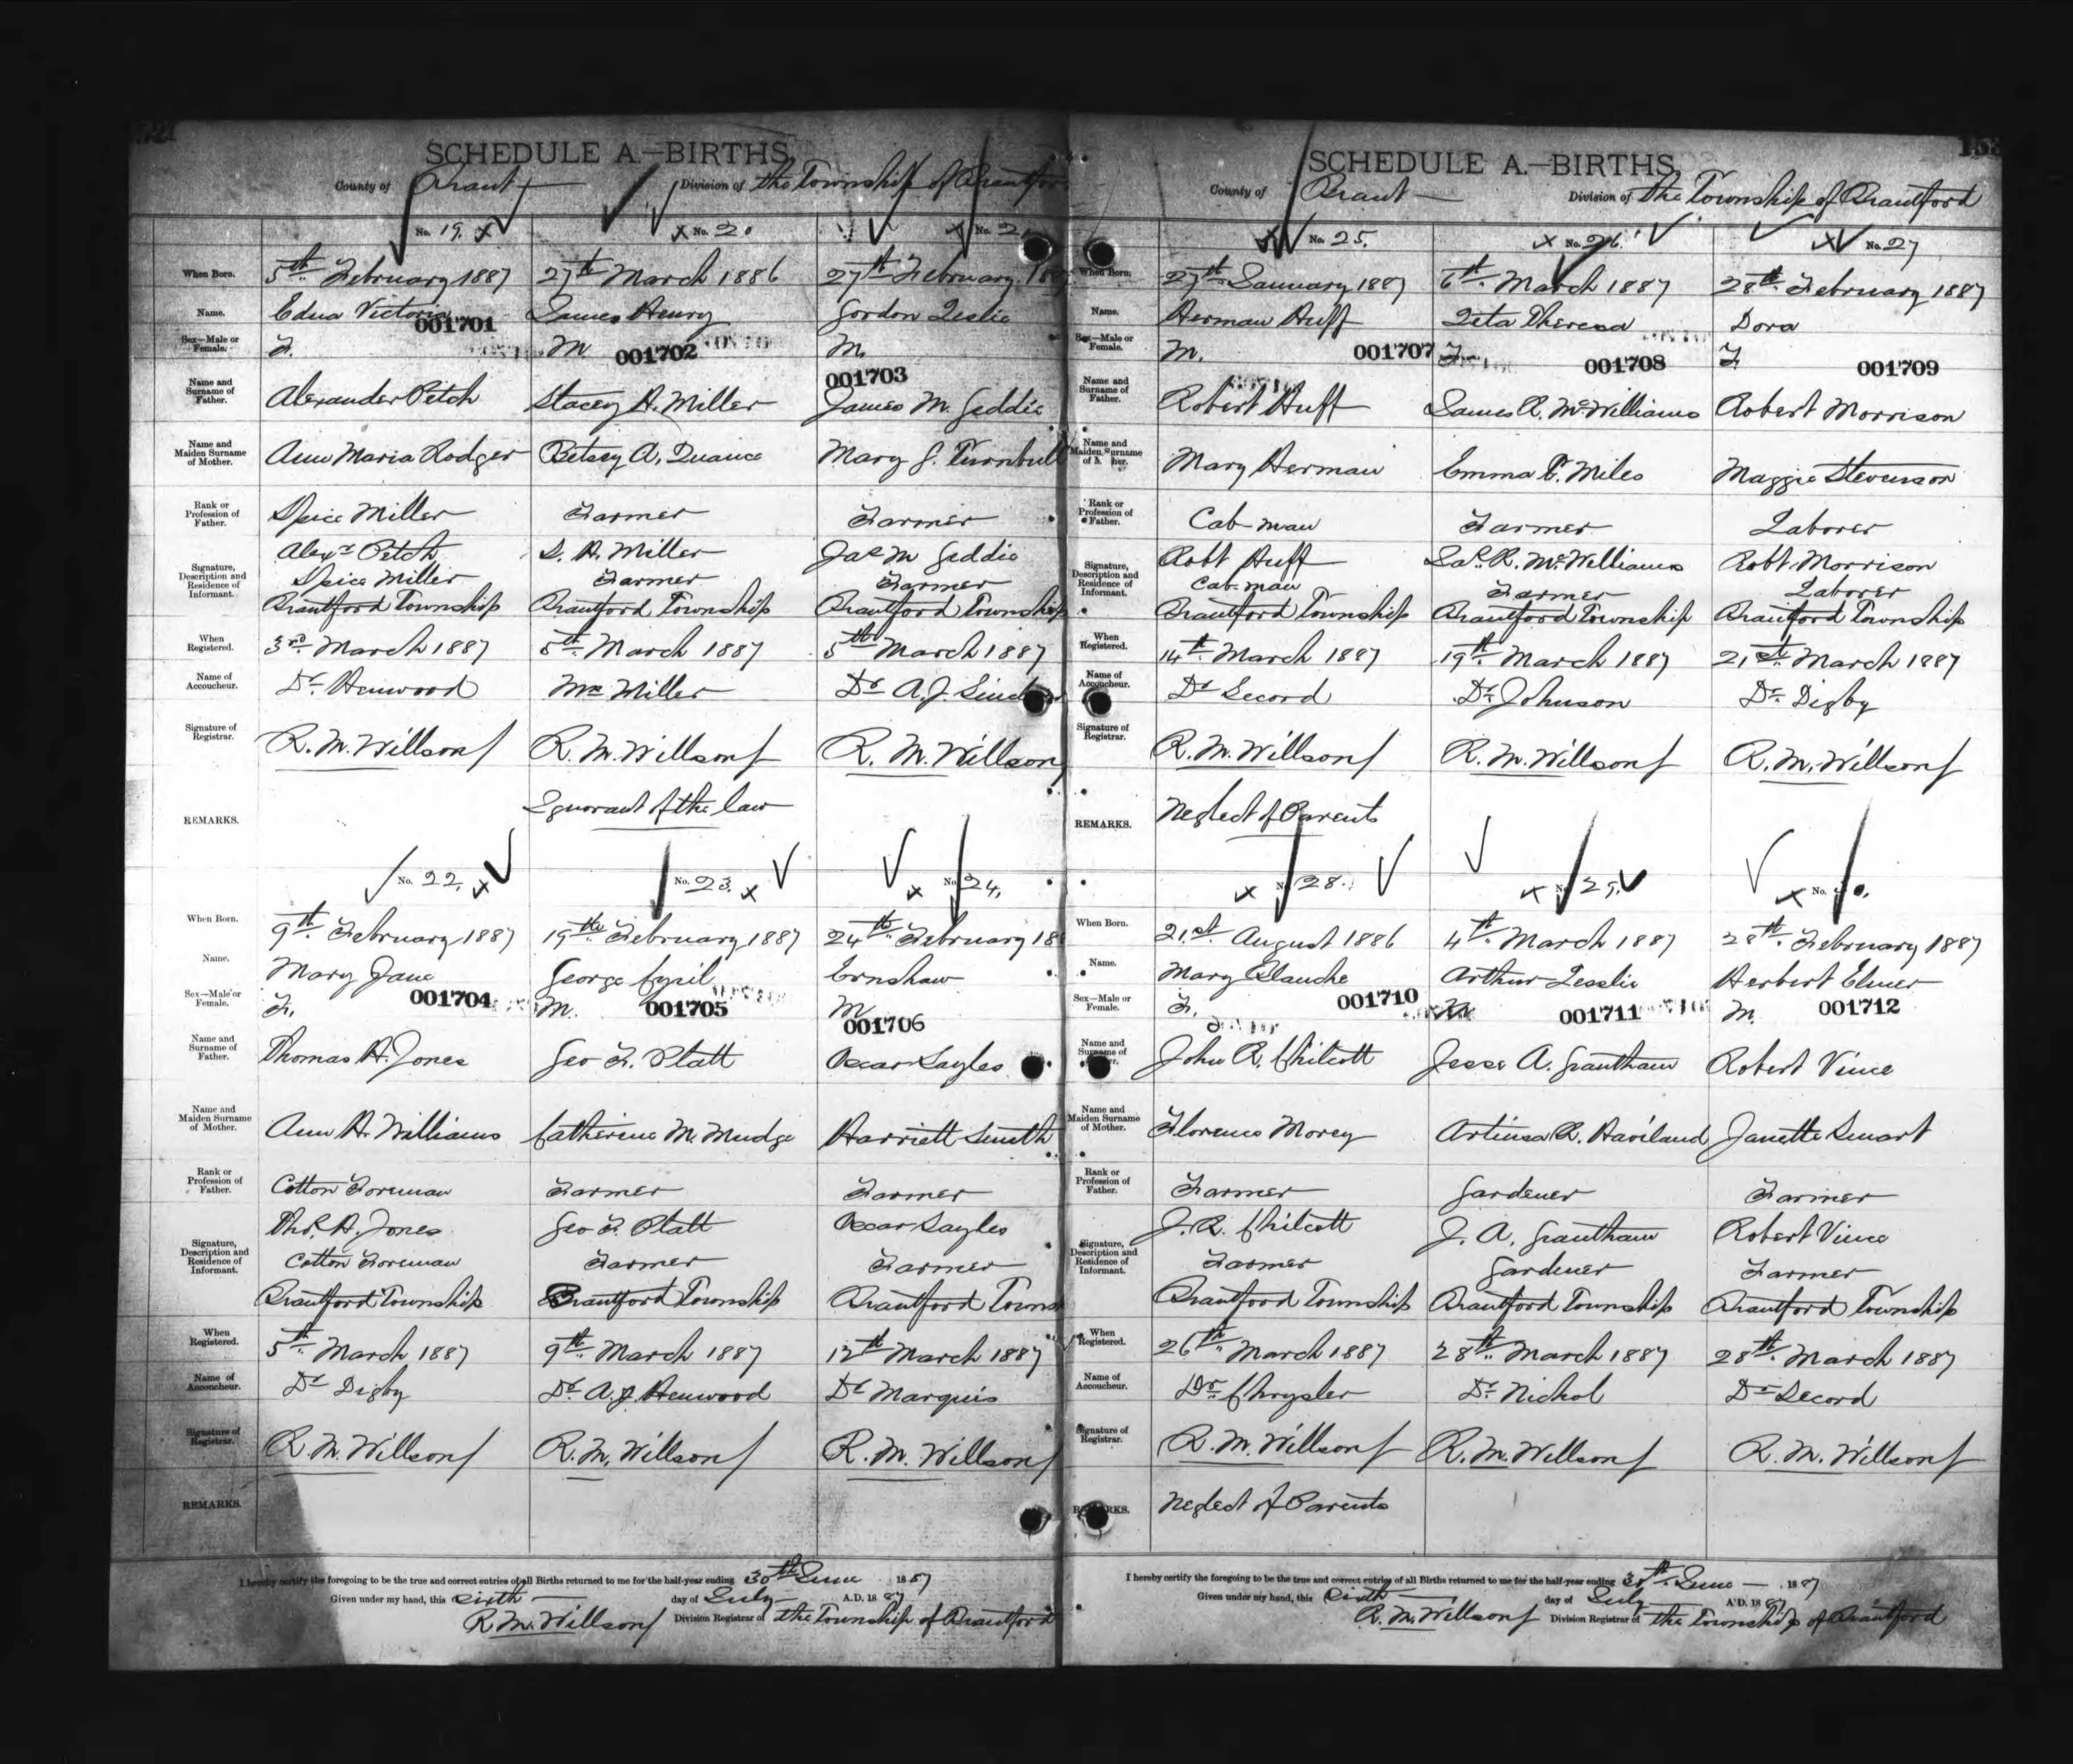 SCHEDULE A.—BIRTHS.
County of Brant Division of the Township of Brantford
No. 19. No. 20 No. 21
When Born. 5th February 1887 27th March 1886 27th February 188
Name. Edna Victoria James Henry Gordon Leslie
001701
Sex—Male or Female. F. M M.
001702
001703
Name and Surname of Father. Alexander Petch Stacey H. Miller James M. Geddie
Name and Maiden Surname of Mother. Ann Maria Rodger Betsey A. Quance Mary G. Turnbull
Rank or Profession of Father. Spice Miller Farmer Farmer
Signature, Description and Residence of Informant. Alexr Petch S. H. Miller Jas M Geddie
Spice Miller Farmer Farmer
Brantford Township Brantford Township Brantford Township
When Registered. 3rd March 1887 5th March 1887 5th March 1887
Name of Accoucheur. Dr Henwood Mrs Miller Dr A. J.
Signature of Registrar. R. M. Willson R. M. Willson R. M. Willson
REMARKS. Ignorant of the law
No. 22. No. 23. No. 24.
When Born. 9th February 1887 19th February 1887 24th February 188
Name. Mary Jane George Cyril Ernshaw
Sex—Male or Female. F. 001704 M. 001705 M
001706
Name and Surname of Father. Thomas H. Jones Geo F. Platt Oscar Sayles
Name and Maiden Surname of Mother. Ann H. Williams Catherine M. Mudge Harriett Smith
Rank or Profession of Father. Cotton Foreman Farmer Farmer
Signature, Description and Residence of Informant. Thos. H. Jones Geo F. Platt Oscar Sayles
Cotton Foreman Farmer Farmer
Brantford Township Brantford Township Brantford Towns
When Registered. 5th March 1887 9th March 1887 12th March 1887
Name of Accoucheur. Dr Digby Dr. A. J. Henwood Dr Marquis
Signature of Registrar. R. M. Willson R. M. Willson R. M. Willson
REMARKS.
I hereby certify the foregoing to be the true and correct entries of all Births returned to me for the half-year ending 30th June 1887
Given under my hand, this sixth day of July A.D. 1887
R. M. Willson Division Registrar of the Township of Brantford
SCHEDULE A.—BIRTHS.
County of Brant Division of the Township of Brantford
No. 25. No. 26. No. 27
When Born. 27th January 1887 6th March 1887 28th February 1887
Name. Herman Huff Zeta Theresa Dora
Sex—Male or Female. M. 001707 F. 001708 F 001709
Name and Surname of Father. Robert Huff James R. McWilliams Robert Morrison
Name and Maiden Surname of Mother. Mary Herman Emma E. Miles Maggie Stevenson
Rank or Profession of Father. Cab-man Farmer Laborer
Signature, Description and Residence of Informant. Robt Huff Jas. R. McWilliams Robt. Morrison
Cab-man Farmer Laborer
Brantford Township Brantford Township Brantford Township
When Registered. 14th March 1887 19th March 1887 21st March 1887
Name of Accoucheur. Dr Secord Dr. Johnson Dr. Digby
Signature of Registrar. R. M. Willson R. M. Willson R. M. Willson
REMARKS. Neglect of Parents
No. 28. No. 29. No. 30.
When Born. 21st August 1886 4th March 1887 28th February 1887
Name. Mary Blanche Arthur Lesslie Herbert Elmer
Sex—Male or Female. F. 001710 M 001711 M. 001712
Name and Surname of Father. John R. Chilcott Jesse A. Grantham Robert Vince
Name and Maiden Surname of Mother. Florence Morey Artinsa R. Haviland Janette Smart
Rank or Profession of Father. Farmer Gardener Farmer
Signature, Description and Residence of Informant. J. R. Chilcott J. A. Grantham Robert Vince
Farmer Gardener Farmer
Brantford Township Brantford Township Brantford Township
When Registered. 26th March 1887 28th March 1887 28th March 1887
Name of Accoucheur. Dr. Chrysler Dr. Nichol Dr Secord
Signature of Registrar. R. M. Willson R. M. Willson R. M. Willson
REMARKS. Neglect of Parents
I hereby certify the foregoing to be the true and correct entries of all Births returned to me for the half-year ending 30th June 1887
Given under my hand, this sixth day of July A.D. 1887
R. M. Willson Division Registrar of the Township of Brantford